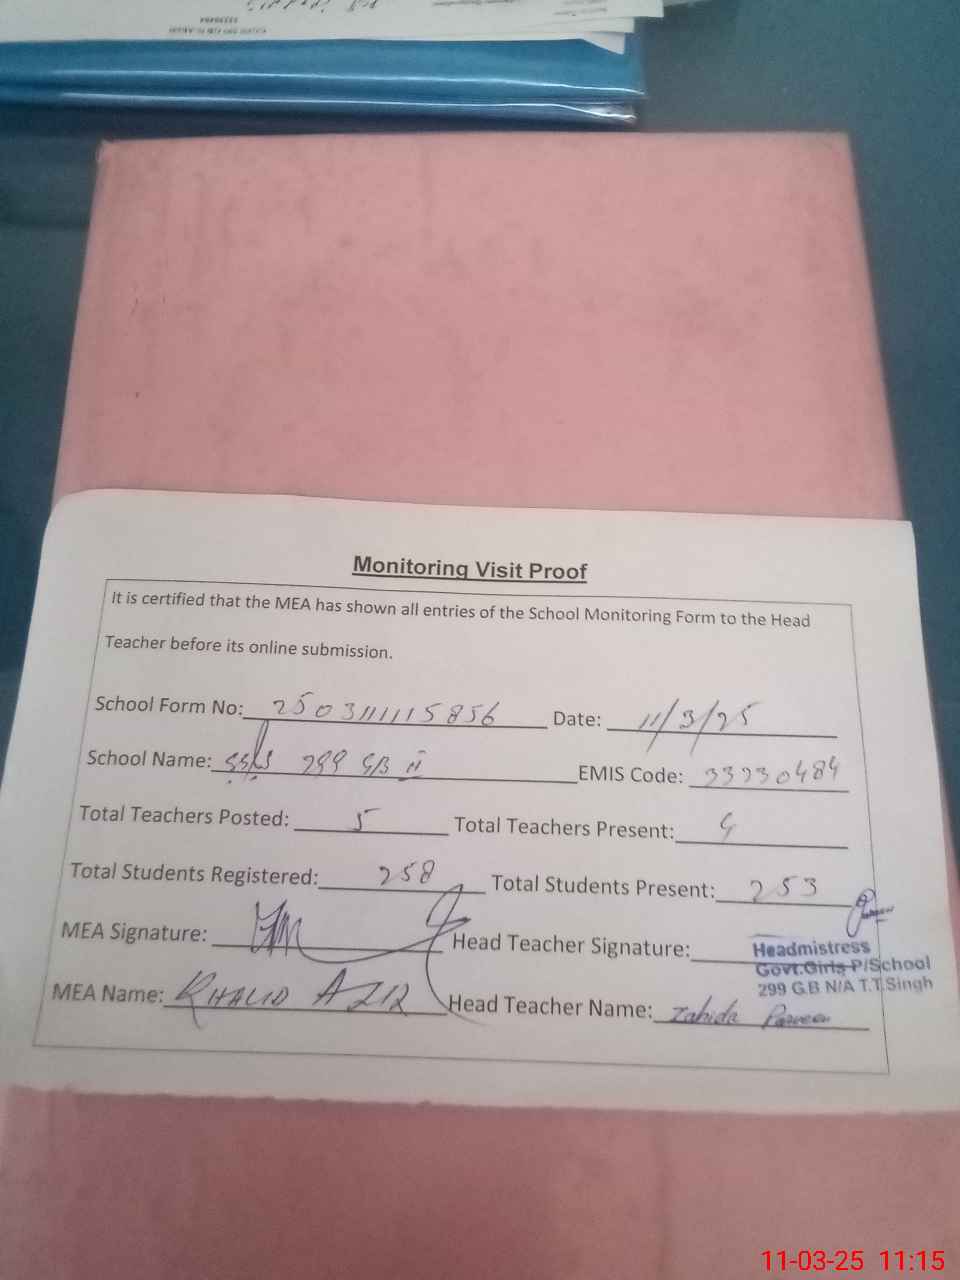 Monitoring Visit Proof
It is certified that the MEA has shown all entries of the School Monitoring Form to the Head
Teacher before its online submission.
School Form No: 250311115856 Date: 11/3/25
School Name: 299 GB II EMIS Code: 33230484
Total Teachers Posted: 5 Total Teachers Present: 4
Total Students Registered: 258 Total Students Present: 253
MEA Signature: Head Teacher Signature:
Headmistress
Govt.Girls P/School
299 G.B N/A T.T.Singh
MEA Name: KHALID AZIZ Head Teacher Name: Zahida Parveen
11-03-25 11:15